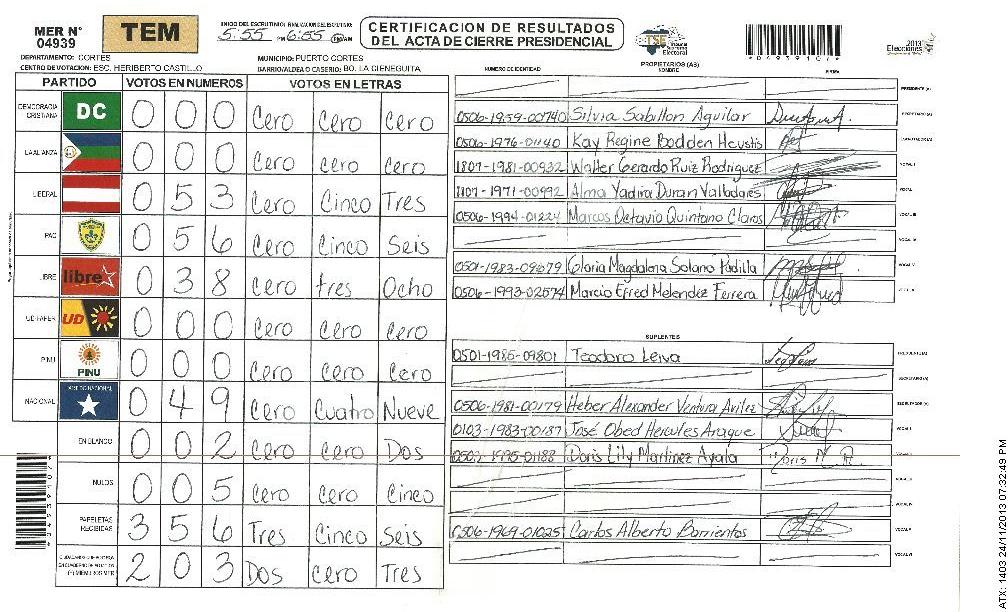 MER N°
04939
TEM
INICIO DEL ESCRUTINIO: FINALIZACION DEL ESCRUTINIO:
5:55 PM 6:55
CERTIFICACION DE RESULTADOS
DEL ACTA DE CIERRE PRESIDENCIAL
TSE Tribunal Supremo Electoral
2013 Elecciones
DEPARTAMENTO: CORTES
MUNICIPIO: PUERTO CORTES
CENTRO DE VOTACION: ESC. HERIBERTO CASTILLO
BARRIO/ALDEA O CASERIO: BO. LA CIENEGUITA
PARTIDO VOTOS EN NUMEROS VOTOS EN LETRAS
DEMOCRACIA CRISTIANA DC 0 0 0 Cero Cero Cero
LA ALIANZA 0 0 0 Cero cero cero
LIBERAL 0 5 3 Cero Cinco Tres
PAC 0 5 6 Cero Cinco Seis
LIBRE libre 0 3 8 Cero tres Ocho
UD-FAPER UD 0 0 0 Cero Cero Cero
PINU PINU 0 0 0 Cero Cero Cero
NACIONAL 0 4 9 Cero Cuatro Nueve
EN BLANCO 0 0 2 Cero Cero Dos
NULOS 0 0 5 Cero Cero Cinco
PAPELETAS RECIBIDAS 3 5 6 Tres Cinco Seis
2 0 3 Dos Cero Tres
NUMERO DE IDENTIDAD PROPIETARIOS (AS) NOMBRE FIRMA
PRESIDENTE (A)
0506-1959-00740 Silvia Sabillon Aguilar SECRETARIO (A)
0506-1976-01140 Kay Regine Bodden Heustis ESCRUTADOR (A)
1807-1981-00932 Walter Gerardo Ruiz Rodriguez VOCAL I
1107-1971-00992 Alma Yadira Duran Valladares VOCAL II
0506-1994-01224 Marcos Octavio Quintano Claros VOCAL III
VOCAL IV
0501-1983-09679 Gloria Magdalena Solano Padilla VOCAL V
0506-1993-02574 Marcio Efred Melendez Ferrera VOCAL VI
SUPLENTES
0501-1985-09801 Teodoro Leiva PRESIDENTE (A)
SECRETARIO (A)
0506-1981-00179 Heber Alexander Ventura Avilez ESCRUTADOR (A)
0103-1983-00187 José Obed Hercules Araque VOCAL I
Doris Lily Martinez Ayala
VOCAL III
VOCAL IV
0506-1969-01025 Carlos Alberto Barrientos VOCAL V
VOCAL VI
ATX: 1403 24/11/2013 07:32:49 PM